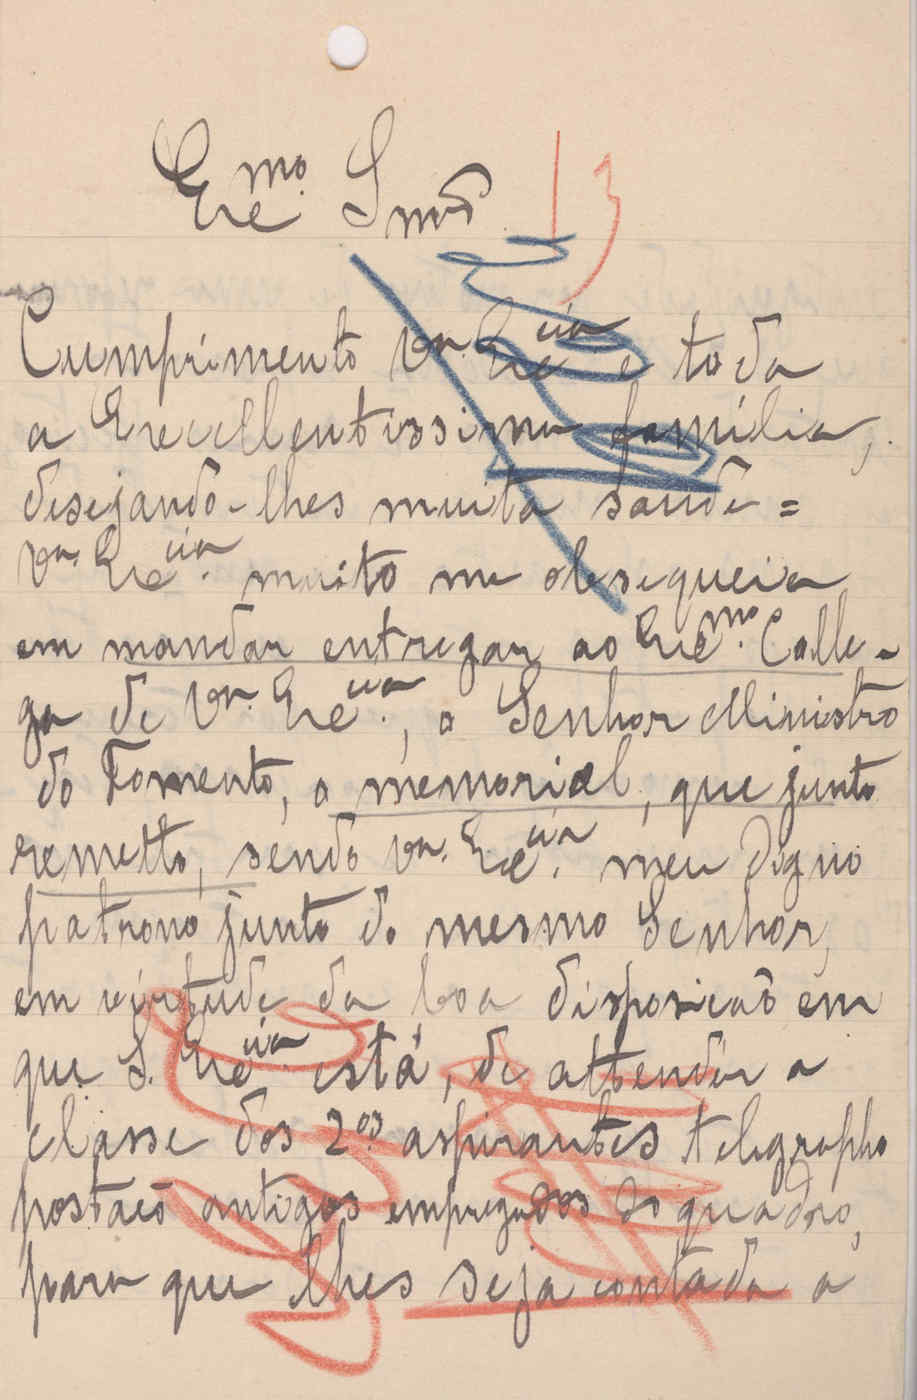 Exc.mo Snr.
13
Cumprimento V.a Exc.cia e toda
a Excellentissima família,
desejando-lhes muita saude =
V.a Exc.cia muito me obsequeia
em mandar entregar ao Exc.mo Colle-
ga de V.a Exc.cia, o Senhor Ministro
do Fomento, o memorial, que junto
remetto, sendo V.a Exc.cia meu digno
patrono junto do mesmo Senhor,
em virtude da boa disposicaõ em
que S. Exc.cia está, de attender a
classe dos 2.os aspirantes telegrapho
postaes antigos empregados do quadro,
para que lhes seja contada a